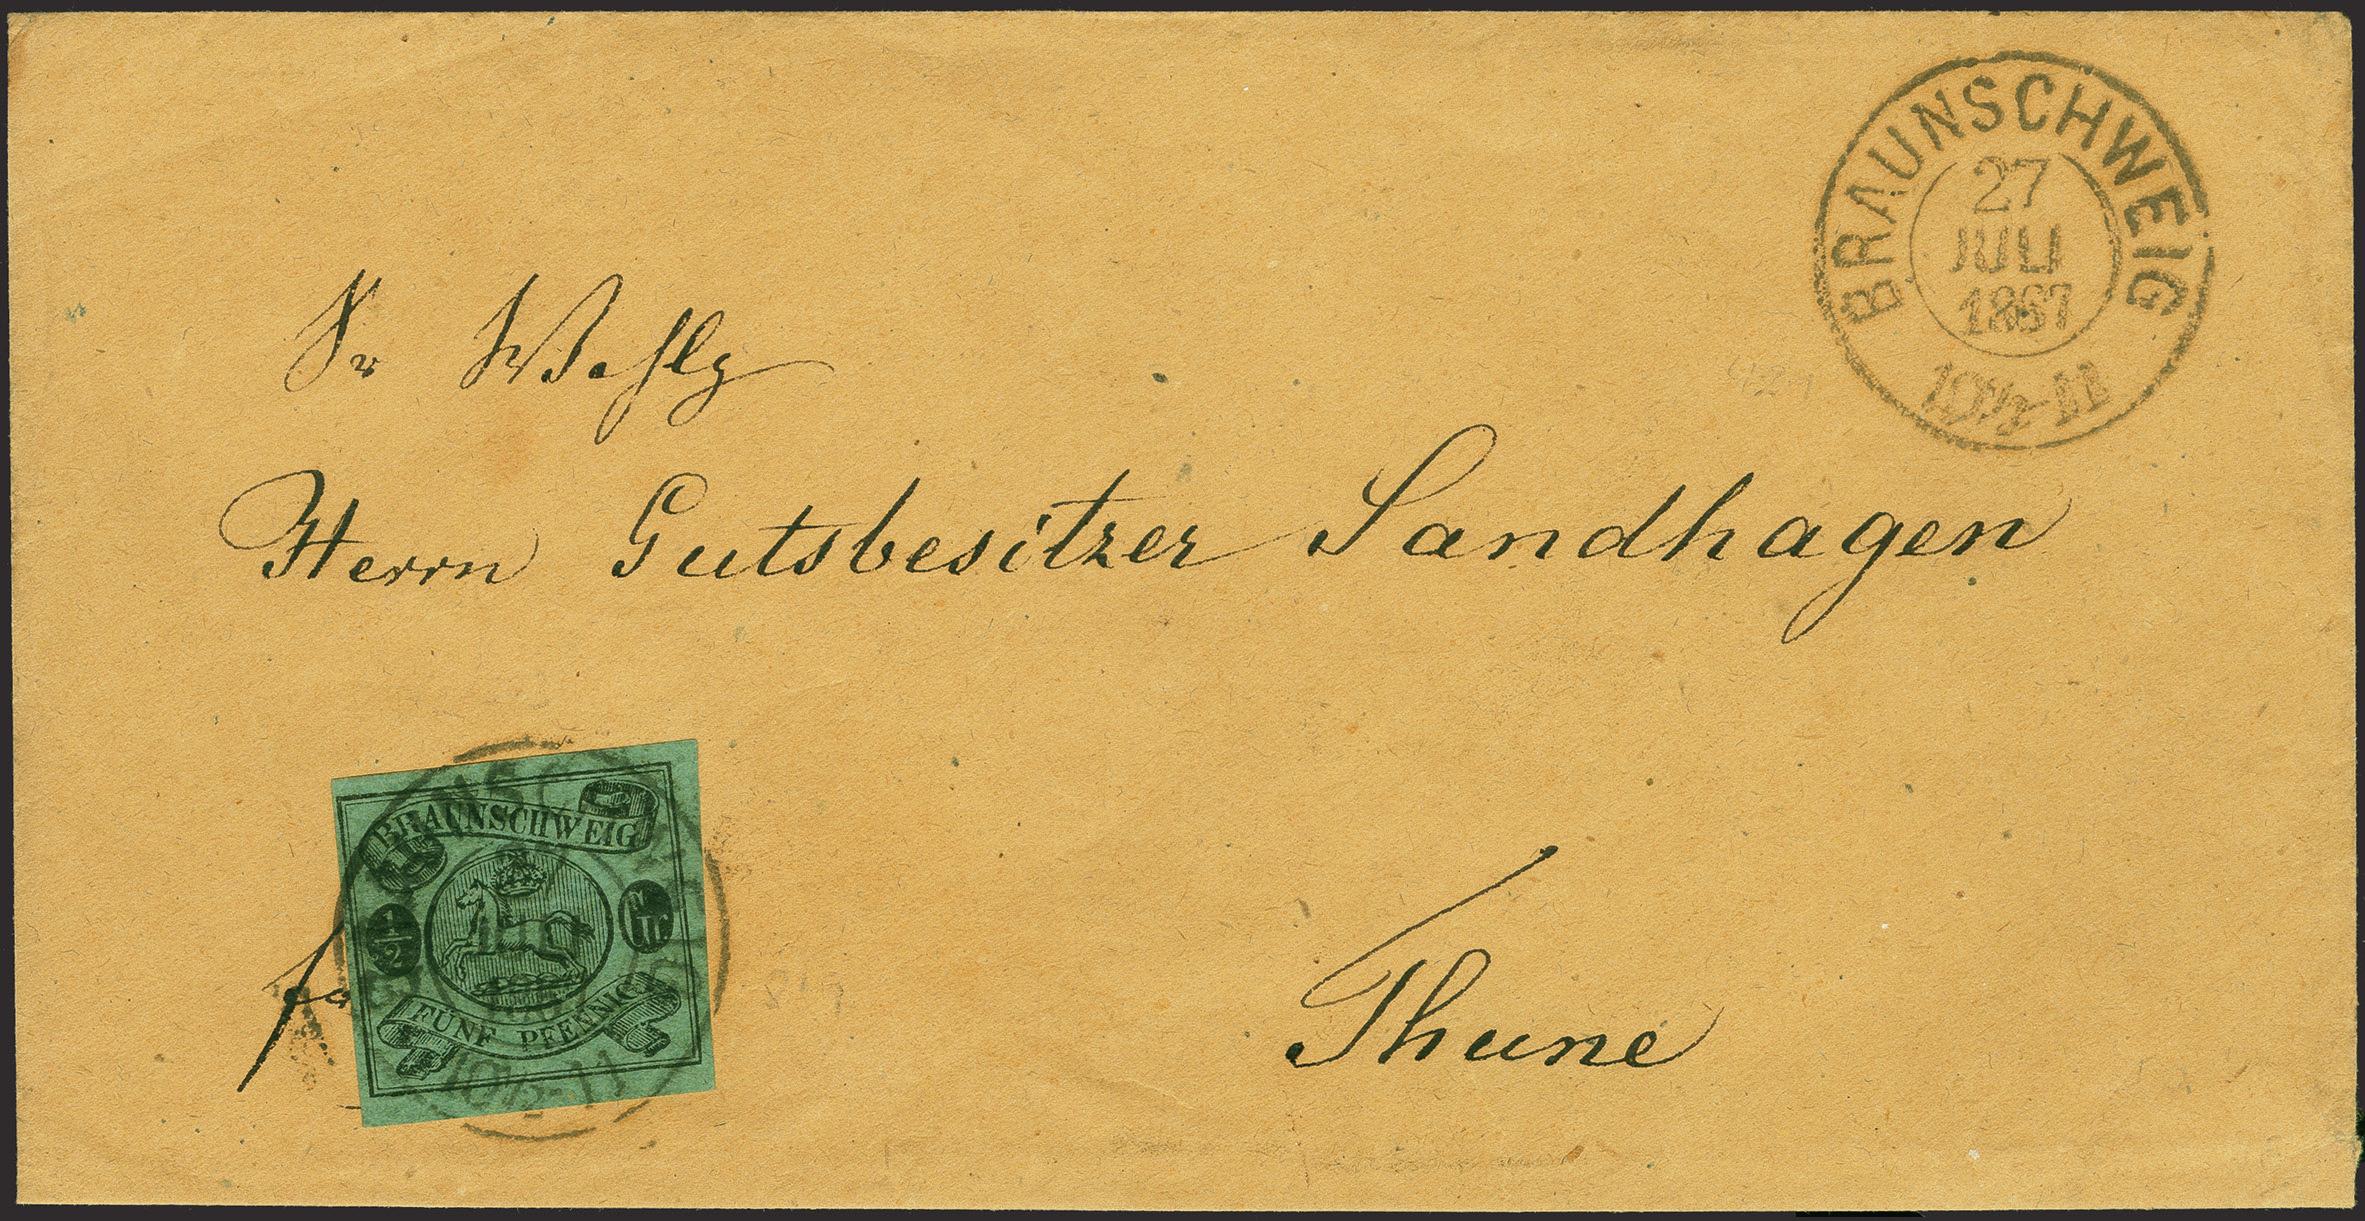 BRAUNSCHWEIG
27
JULI
1867
10½-11
Sr Wohlg
Herrn Gutsbesitzer Sandhagen
Thune
fr
BRAUNSCHWEIG
1/2
Gr.
FÜNF PFENNIG
10½-11